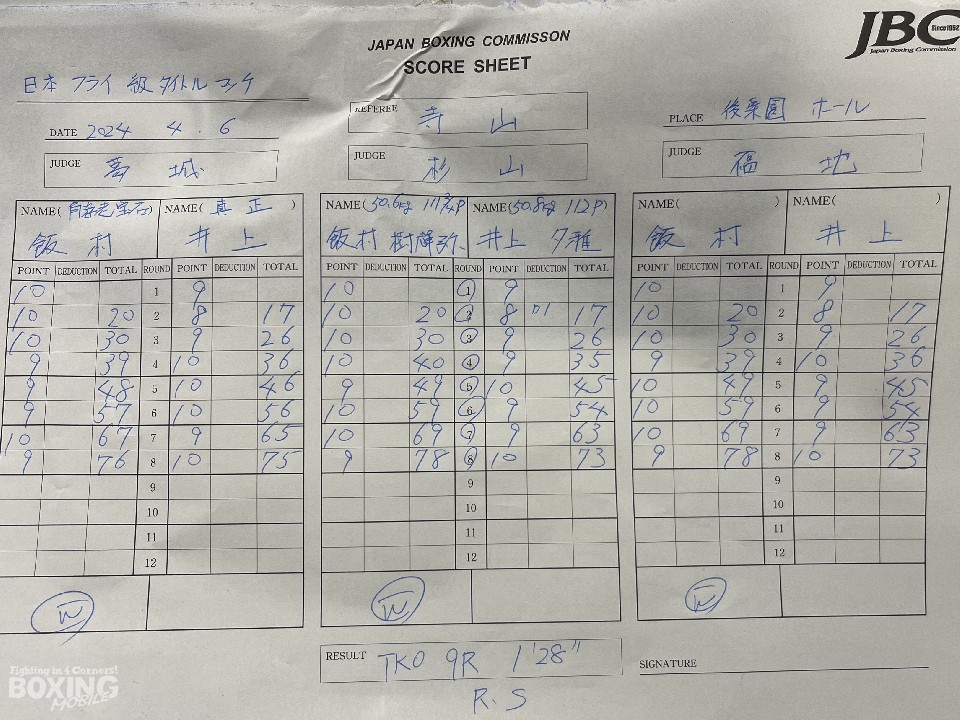 JAPAN BOXING COMMISSON
SCORE SHEET
JBC Since1952
Japan Boxing Commission
日本 フライ 級 タイトル マッチ
DATE 2024 4 . 6
REFEREE 寺 山
PLACE 後楽園 ホール
JUDGE 葛 城
JUDGE 杉 山
JUDGE 福 地
NAME( 角海老宝石) NAME( 真 正 )
飯 村 井 上
POINT DEDUCTION TOTAL ROUND POINT DEDUCTION TOTAL
10 1 9
10 20 2 8 17
10 30 3 9 26
9 39 4 10 36
9 48 5 10 46
9 57 6 10 56
10 67 7 9 65
9 76 8 10 75
9
10
11
12
W
NAME(50.6kg 111 3/4P NAME(50.8kg 112P)
飯村 樹輝弥 井上 夕雅
POINT DEDUCTION TOTAL ROUND POINT DEDUCTION TOTAL
10 1 9
10 20 2 8 D1 17
10 30 3 9 26
10 40 4 9 35
9 49 5 10 45
10 59 6 9 54
10 69 7 9 63
9 78 8 10 73
9
10
11
12
W
NAME( ) NAME( )
飯 村 井 上
POINT DEDUCTION TOTAL ROUND POINT DEDUCTION TOTAL
10 1 9
10 20 2 8 17
10 30 3 9 26
9 39 4 10 36
10 49 5 9 45
10 59 6 9 54
10 69 7 9 63
9 78 8 10 73
9
10
11
12
W
RESULT TKO 9R 1'28"
R.S
SIGNATURE
Fighting in 4 Corners!
BOXING
MOBILE